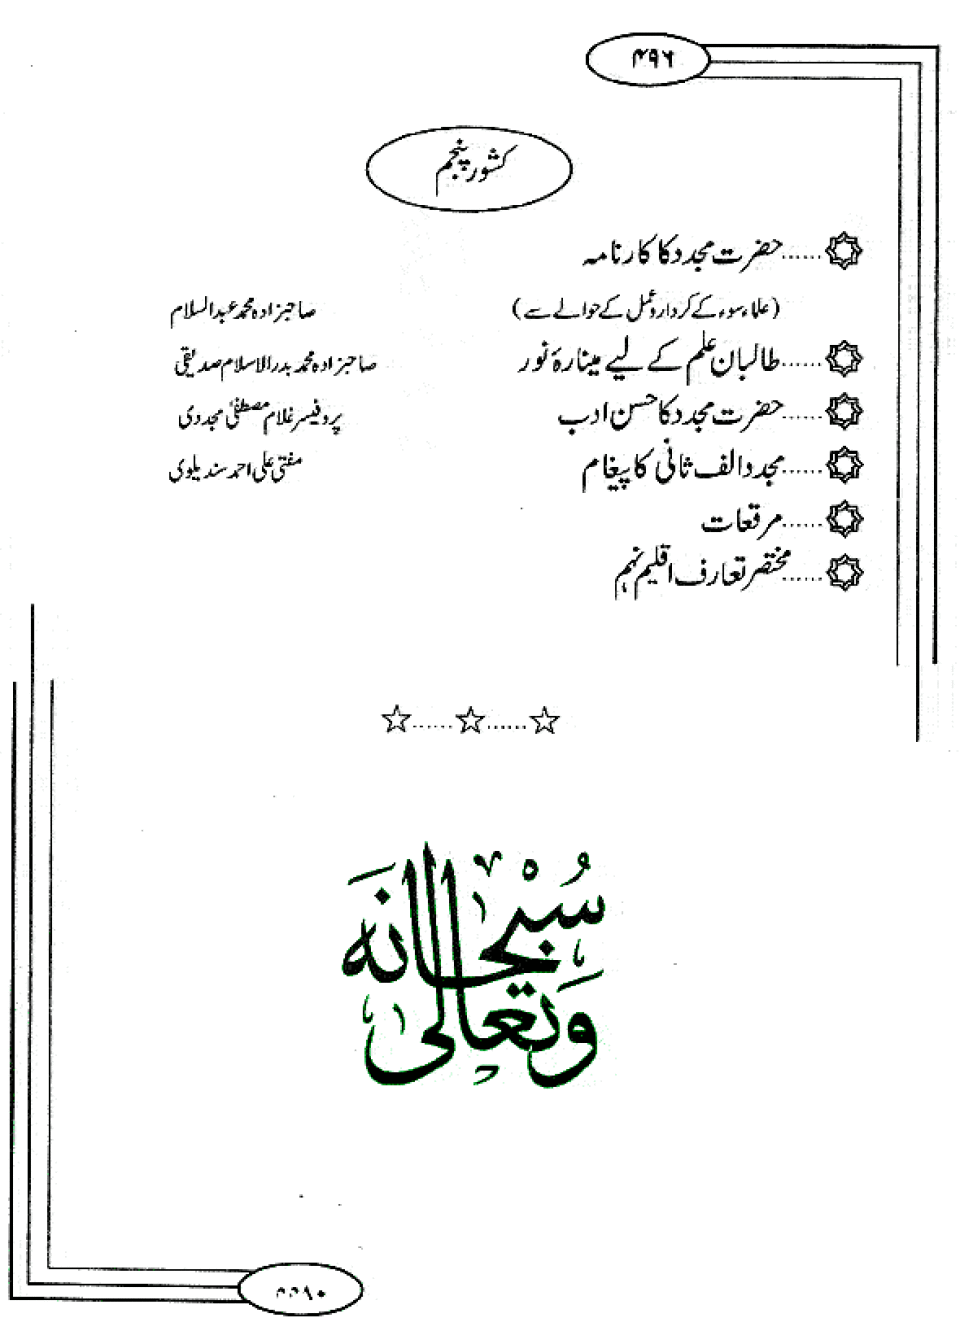 ۴۹۶
کشور پنجم
......حضرت مجدد کا کارنامہ
(علماء سوء کے کردار و عمل کے حوالے سے) صاحبزادہ محمد عبدالسلام
......طالبان علم کے لیے مینارۂ نور صاحبزادہ محمد بدرالاسلام صدیقی
......حضرت مجدد کا حسن ادب پروفیسر غلام مصطفیٰ مجددی
......مجدد الف ثانی کا پیغام مفتی علی احمد سندیلوی
......مرقعات
......مختصر تعارف اقلیم نہم
☆......☆......☆
سُبْحَانَهٗ
وَتَعَالٰى